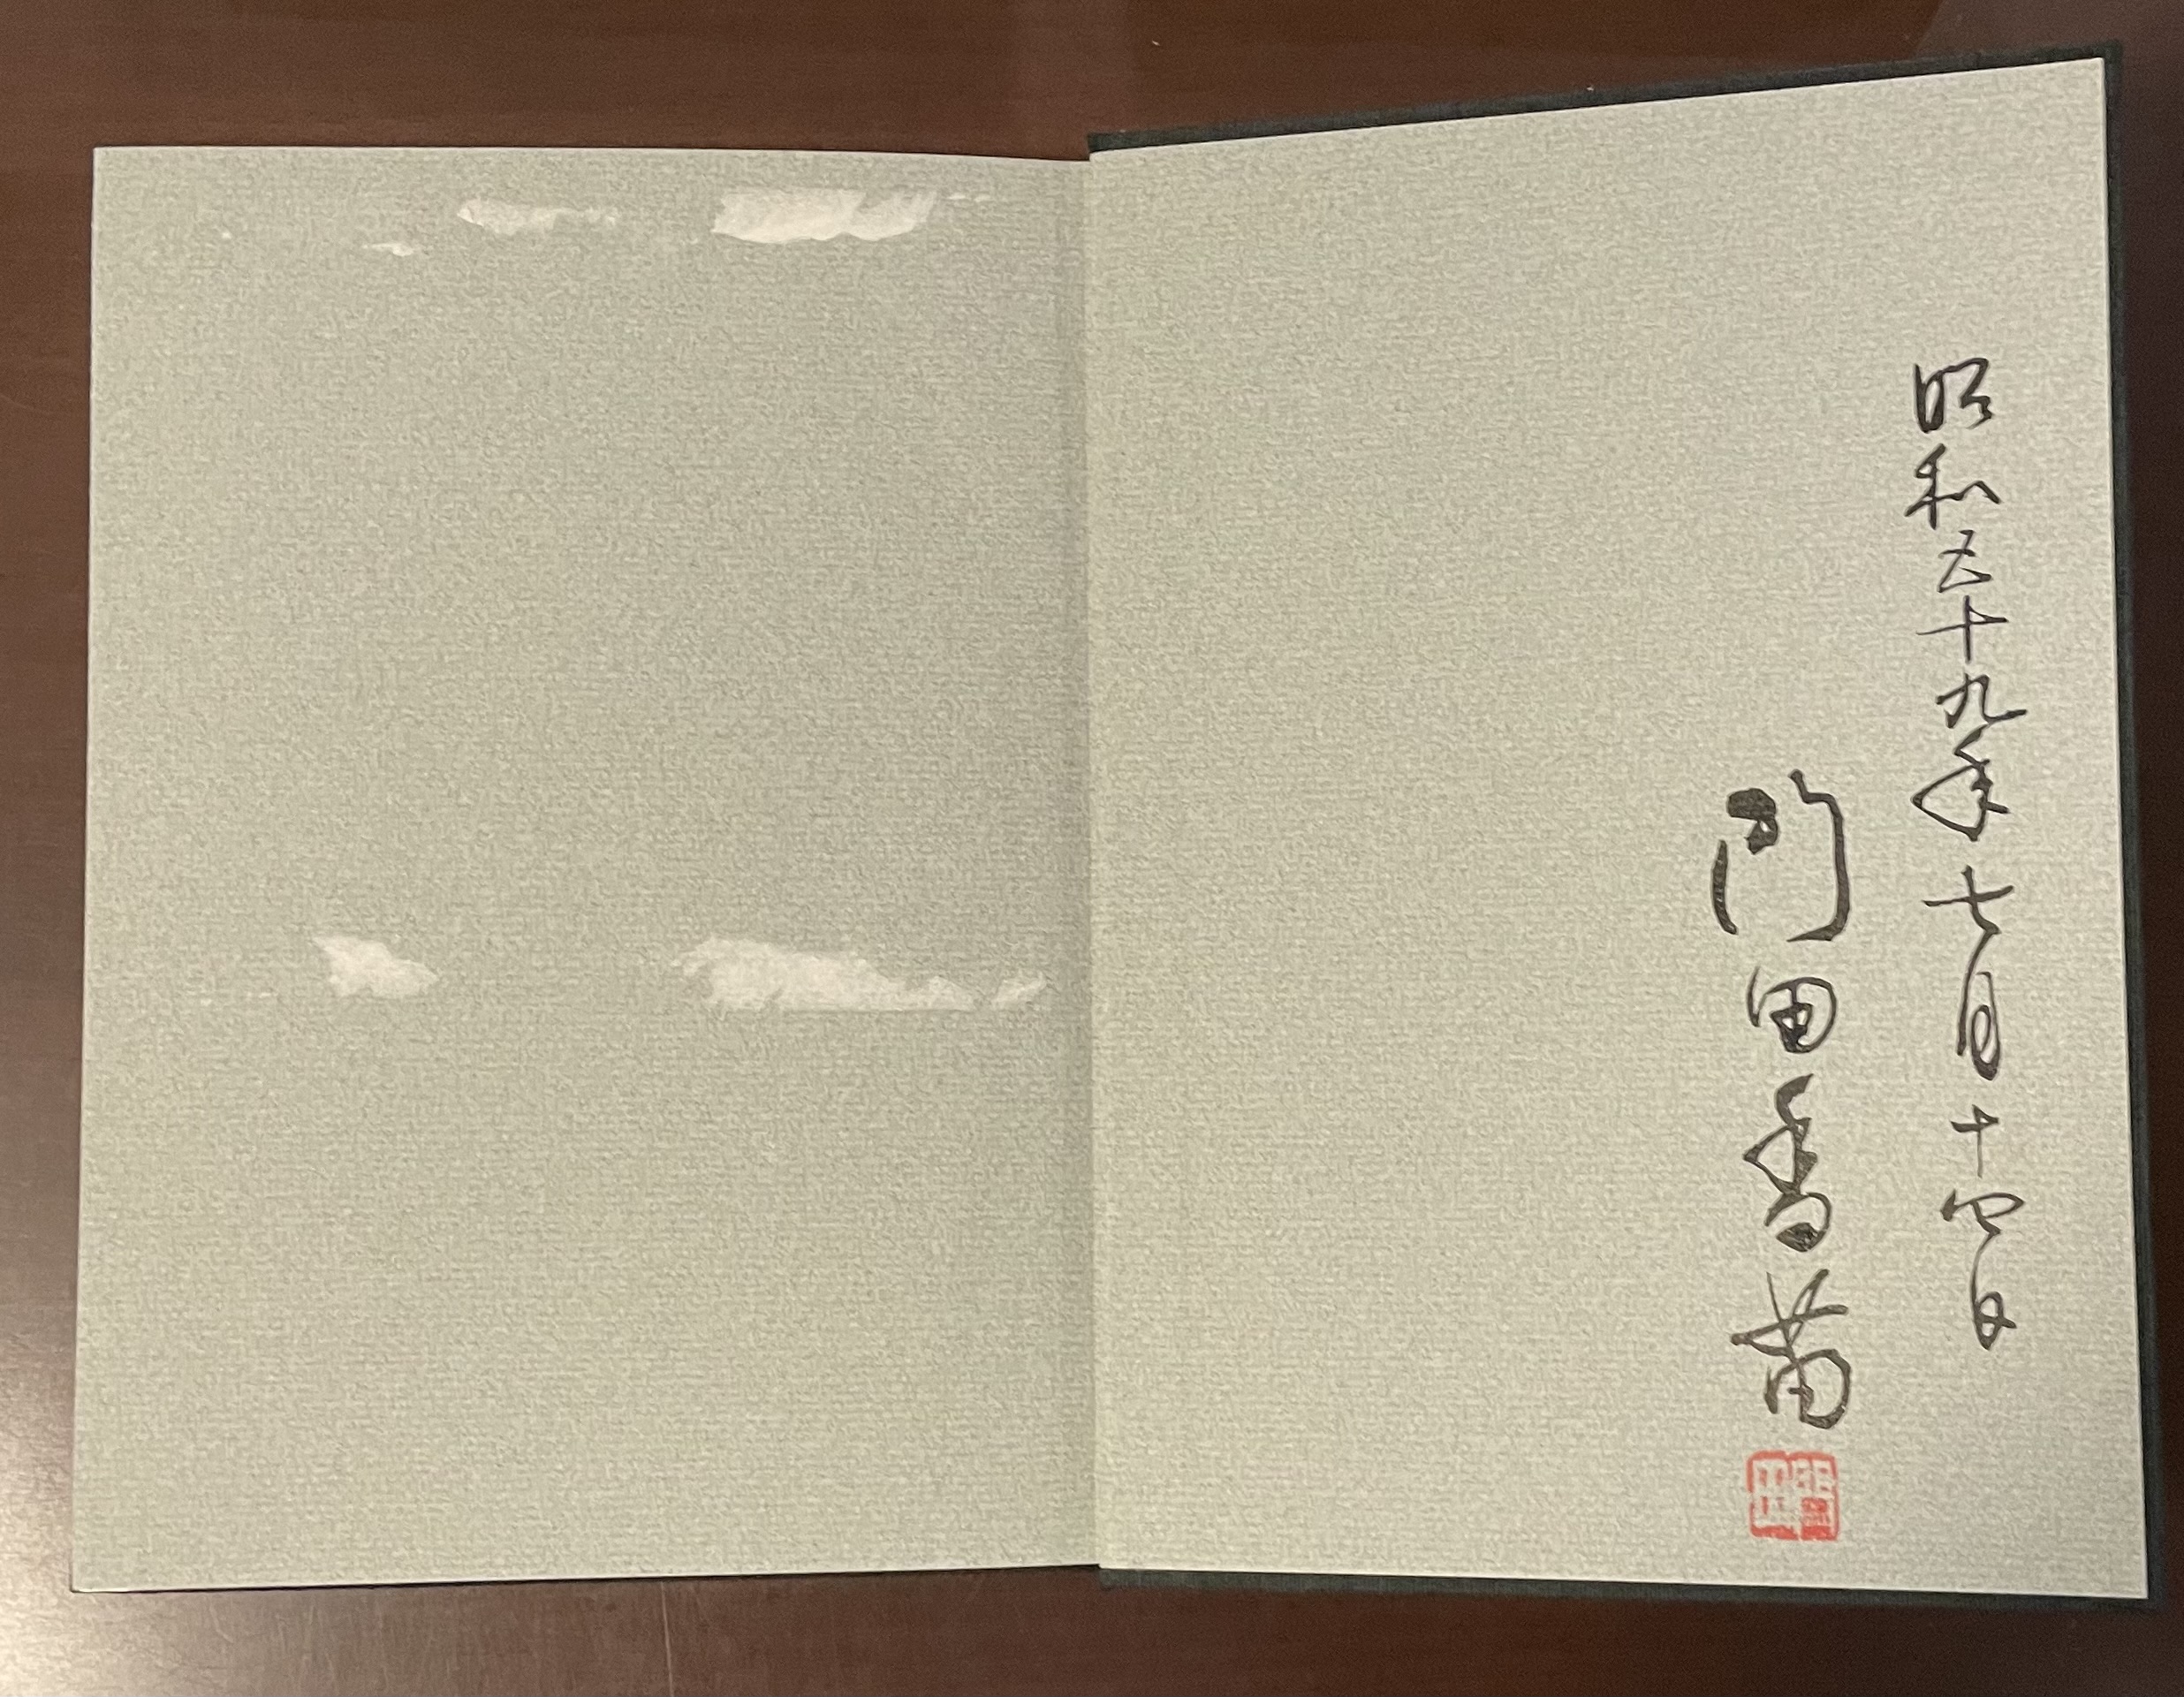 昭和五十九年七月十四日
門田香苗